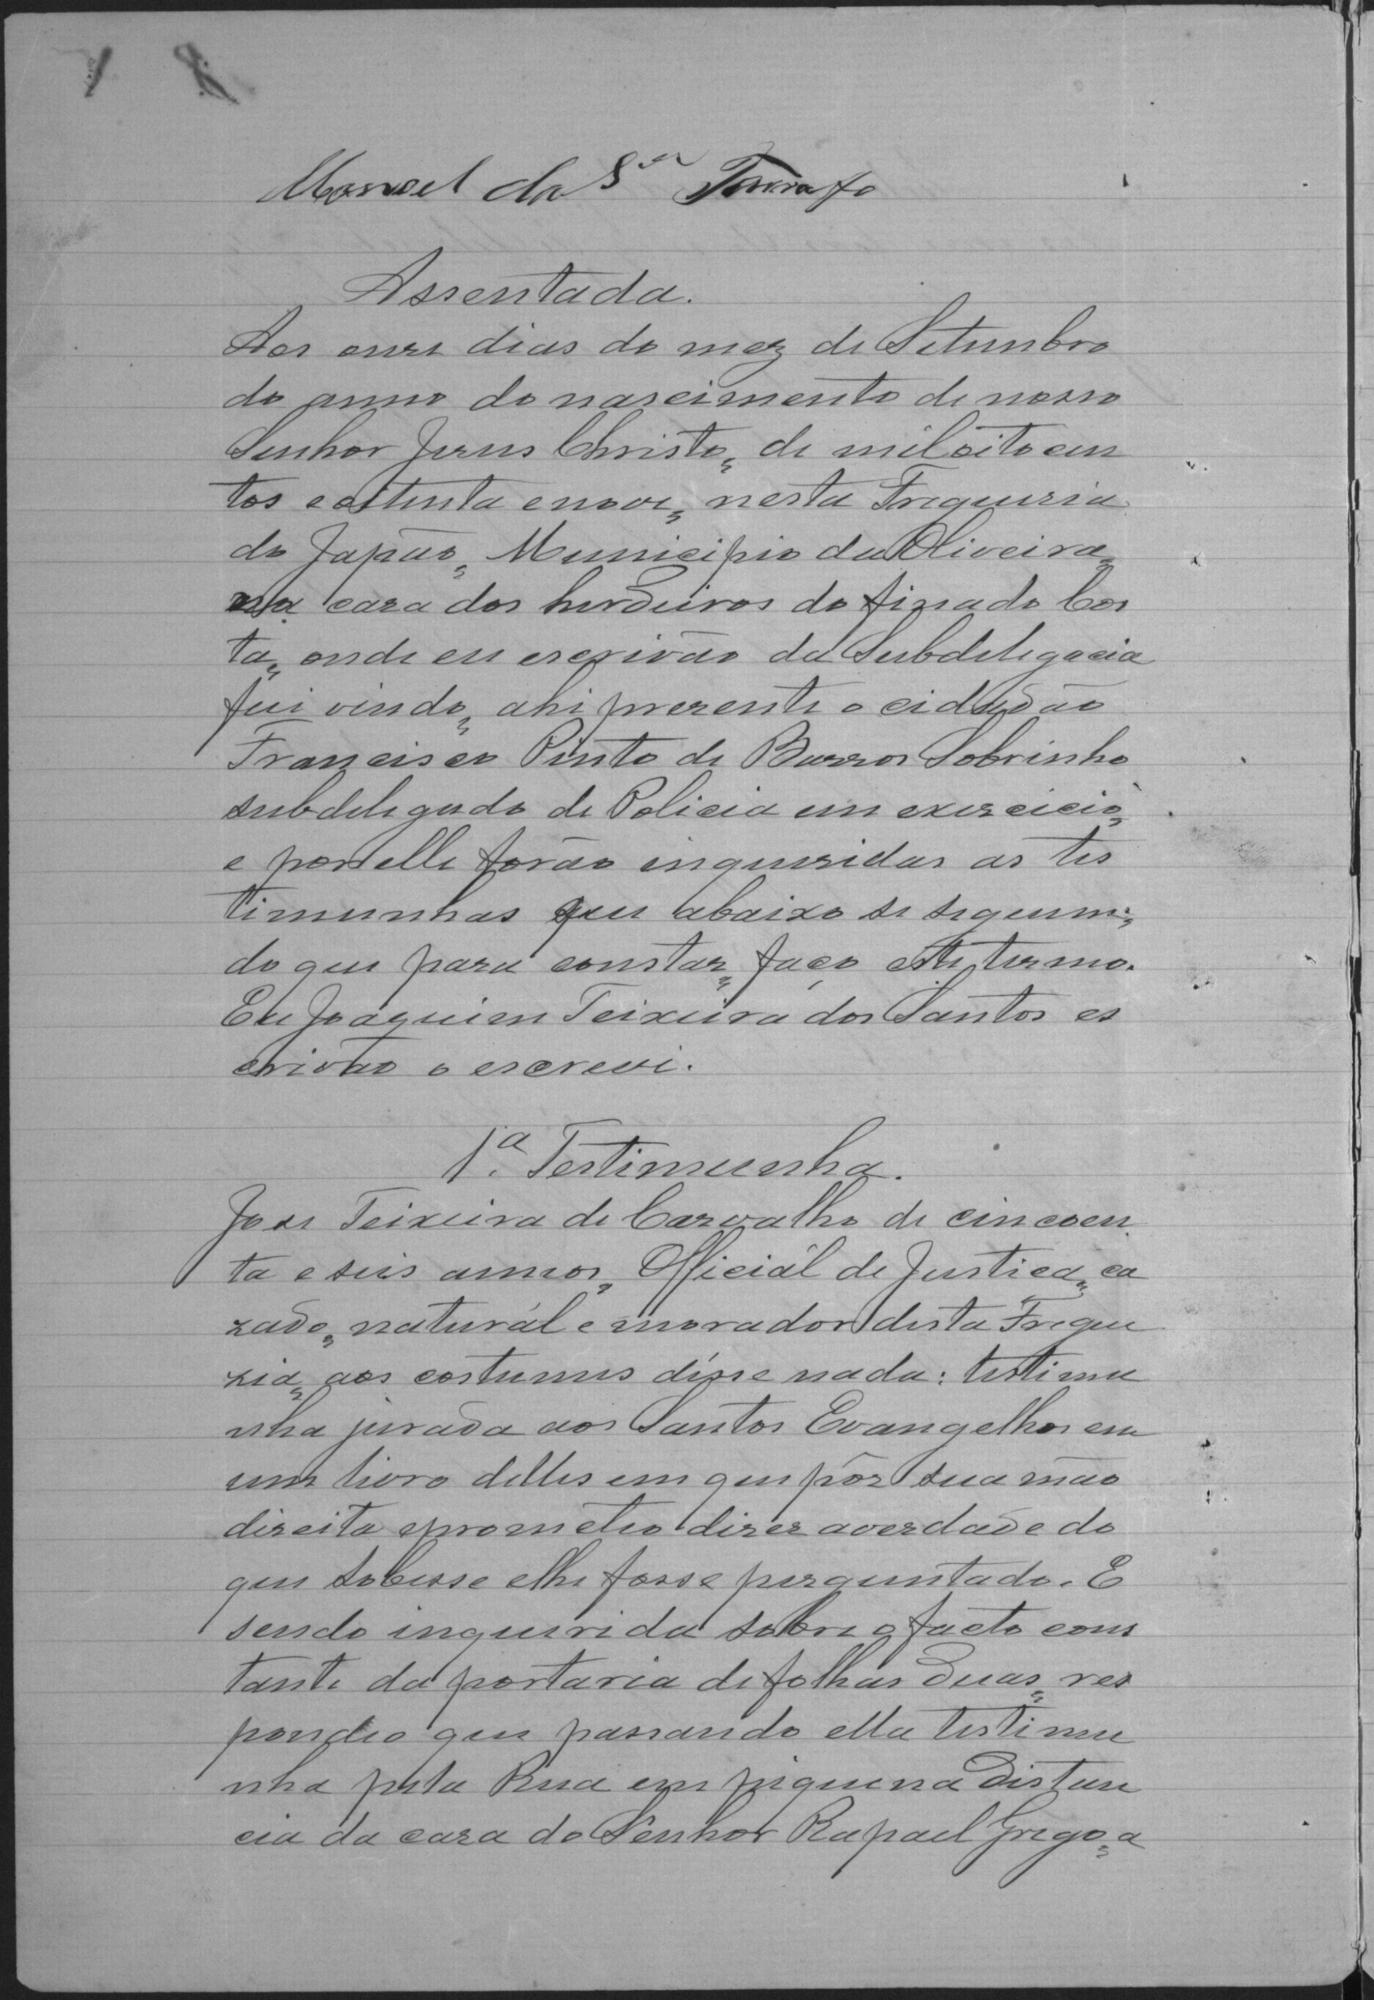 Manoel da Sª Tarrafo
Assentada.
Aos onze dias do mez de Setembro
do anno do nascimento de nosso
Senhor Jesus Christo, de mil oito cen
tos e oitenta e nove, nesta Freguezia
do Japão, Municipio da Oliveira,
na caza dos herdeiros do finado Cos
ta, onde eu escrivão da Subdelegacia
fui vindo, ahi prezente o cidadão
Francisco Pinto de Barros Sobrinho
subdelegado de Policia em exercicio,
e por elle forão inqueridas as tes
timunhas que abaixo se seguem;
do que para constar, faço este termo.
Eu Joaquim Teixeira dos Santos es
crivão o escrevi.
1ª. Testimunha.
Jose Teixeira de Carvalho de cincoen
ta e seis annos, Official de Justiça, ca
zado, naturál e morador desta Fregue
zia, aos costumes disse nada: testimu
nha jurada aos Santos Evangelhos em
um livro delles em que pôz sua mão
direita e prometeo dizer a verdade do
que sobesse e lhe fosse perguntado. E
sendo inquerida sobre o facto cons
tante da portaria de folhas duas, res
pondeo que passando ella testimu
nha pela Rua em piquena distan
cia da caza do Senhor Rapael Grego, a